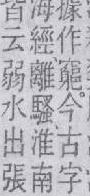 據作竆。今古字
海經離騷淮南
皆云弱水出張